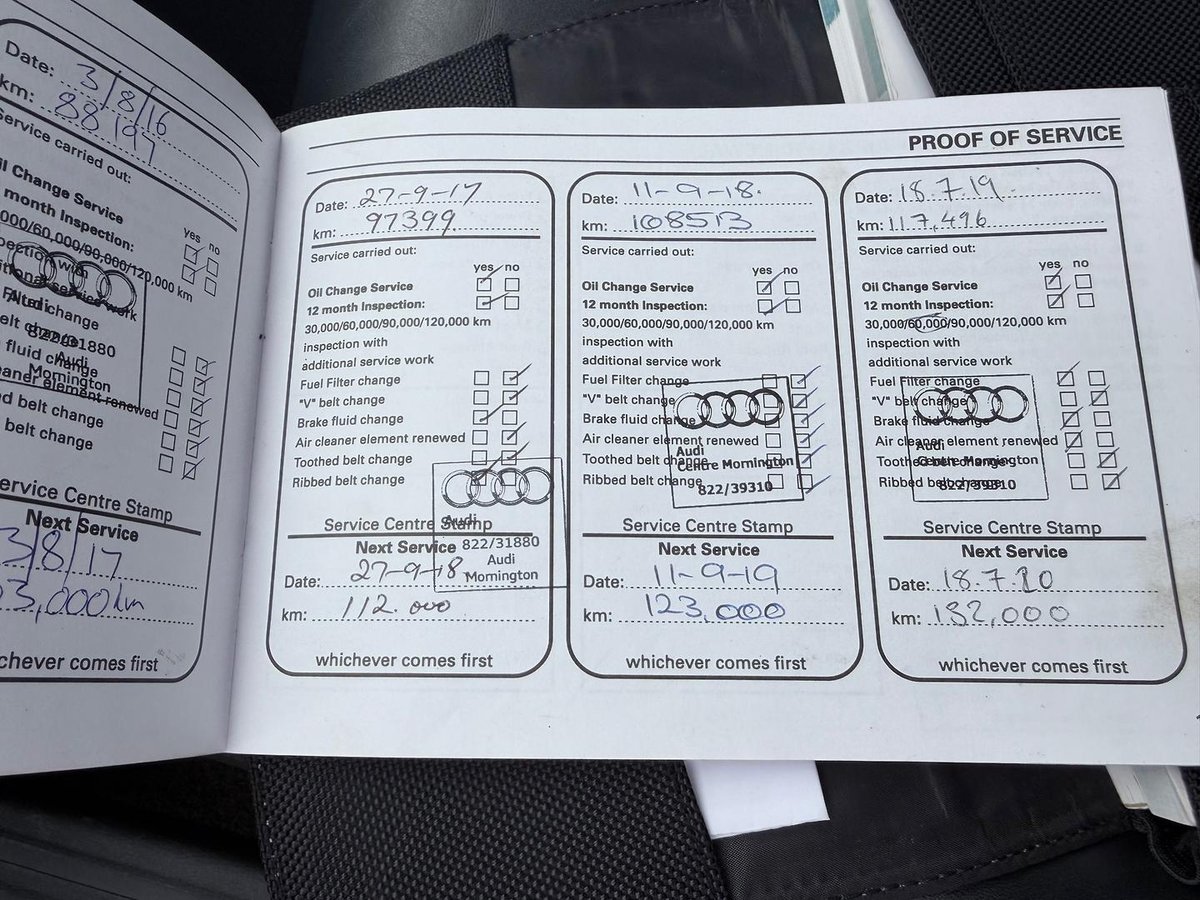 Date: 3/8/16
km: 88 197
Service carried out:
il Change Service
month Inspection:
yes no
000/60,000/90,000/120,000 km
Audi
822/31880
Audi
Mornington
fluid change
eaner element renewed
d belt change
belt change
ervice Centre Stamp
Next Service
3/8/17
3,000 km
chever comes first
PROOF OF SERVICE
Date: 27-9-17
km: 97399
Service carried out:
yes no
Oil Change Service
12 month Inspection:
30,000/60,000/90,000/120,000 km
inspection with
additional service work
Fuel Filter change
"V" belt change
Brake fluid change
Air cleaner element renewed
Toothed belt change
Ribbed belt change
Service Centre Stamp
Audi
822/31880
Audi
Mornington
Next Service
Date: 27-9-18
km: 112.000
whichever comes first
Date: 11-9-18.
km: 108513
Service carried out:
yes no
Oil Change Service
12 month Inspection:
30,000/60,000/90,000/120,000 km
inspection with
additional service work
Fuel Filter change
"V" belt change
Brake fluid change
Air cleaner element renewed
Toothed belt change
Ribbed belt change
Audi
Centre Mornington
822/39310
Service Centre Stamp
Next Service
Date: 11-9-19
km: 123,000
whichever comes first
Date: 18.7.19.
km: 117,496
Service carried out:
yes no
Oil Change Service
12 month Inspection:
30,000/60,000/90,000/120,000 km
inspection with
additional service work
Fuel Filter change
"V" belt change
Brake fluid change
Air cleaner element renewed
Toothed belt change
Ribbed belt change
Audi
Centre Mornington
822/39310
Service Centre Stamp
Next Service
Date: 18.7.20
km: 132,000
whichever comes first